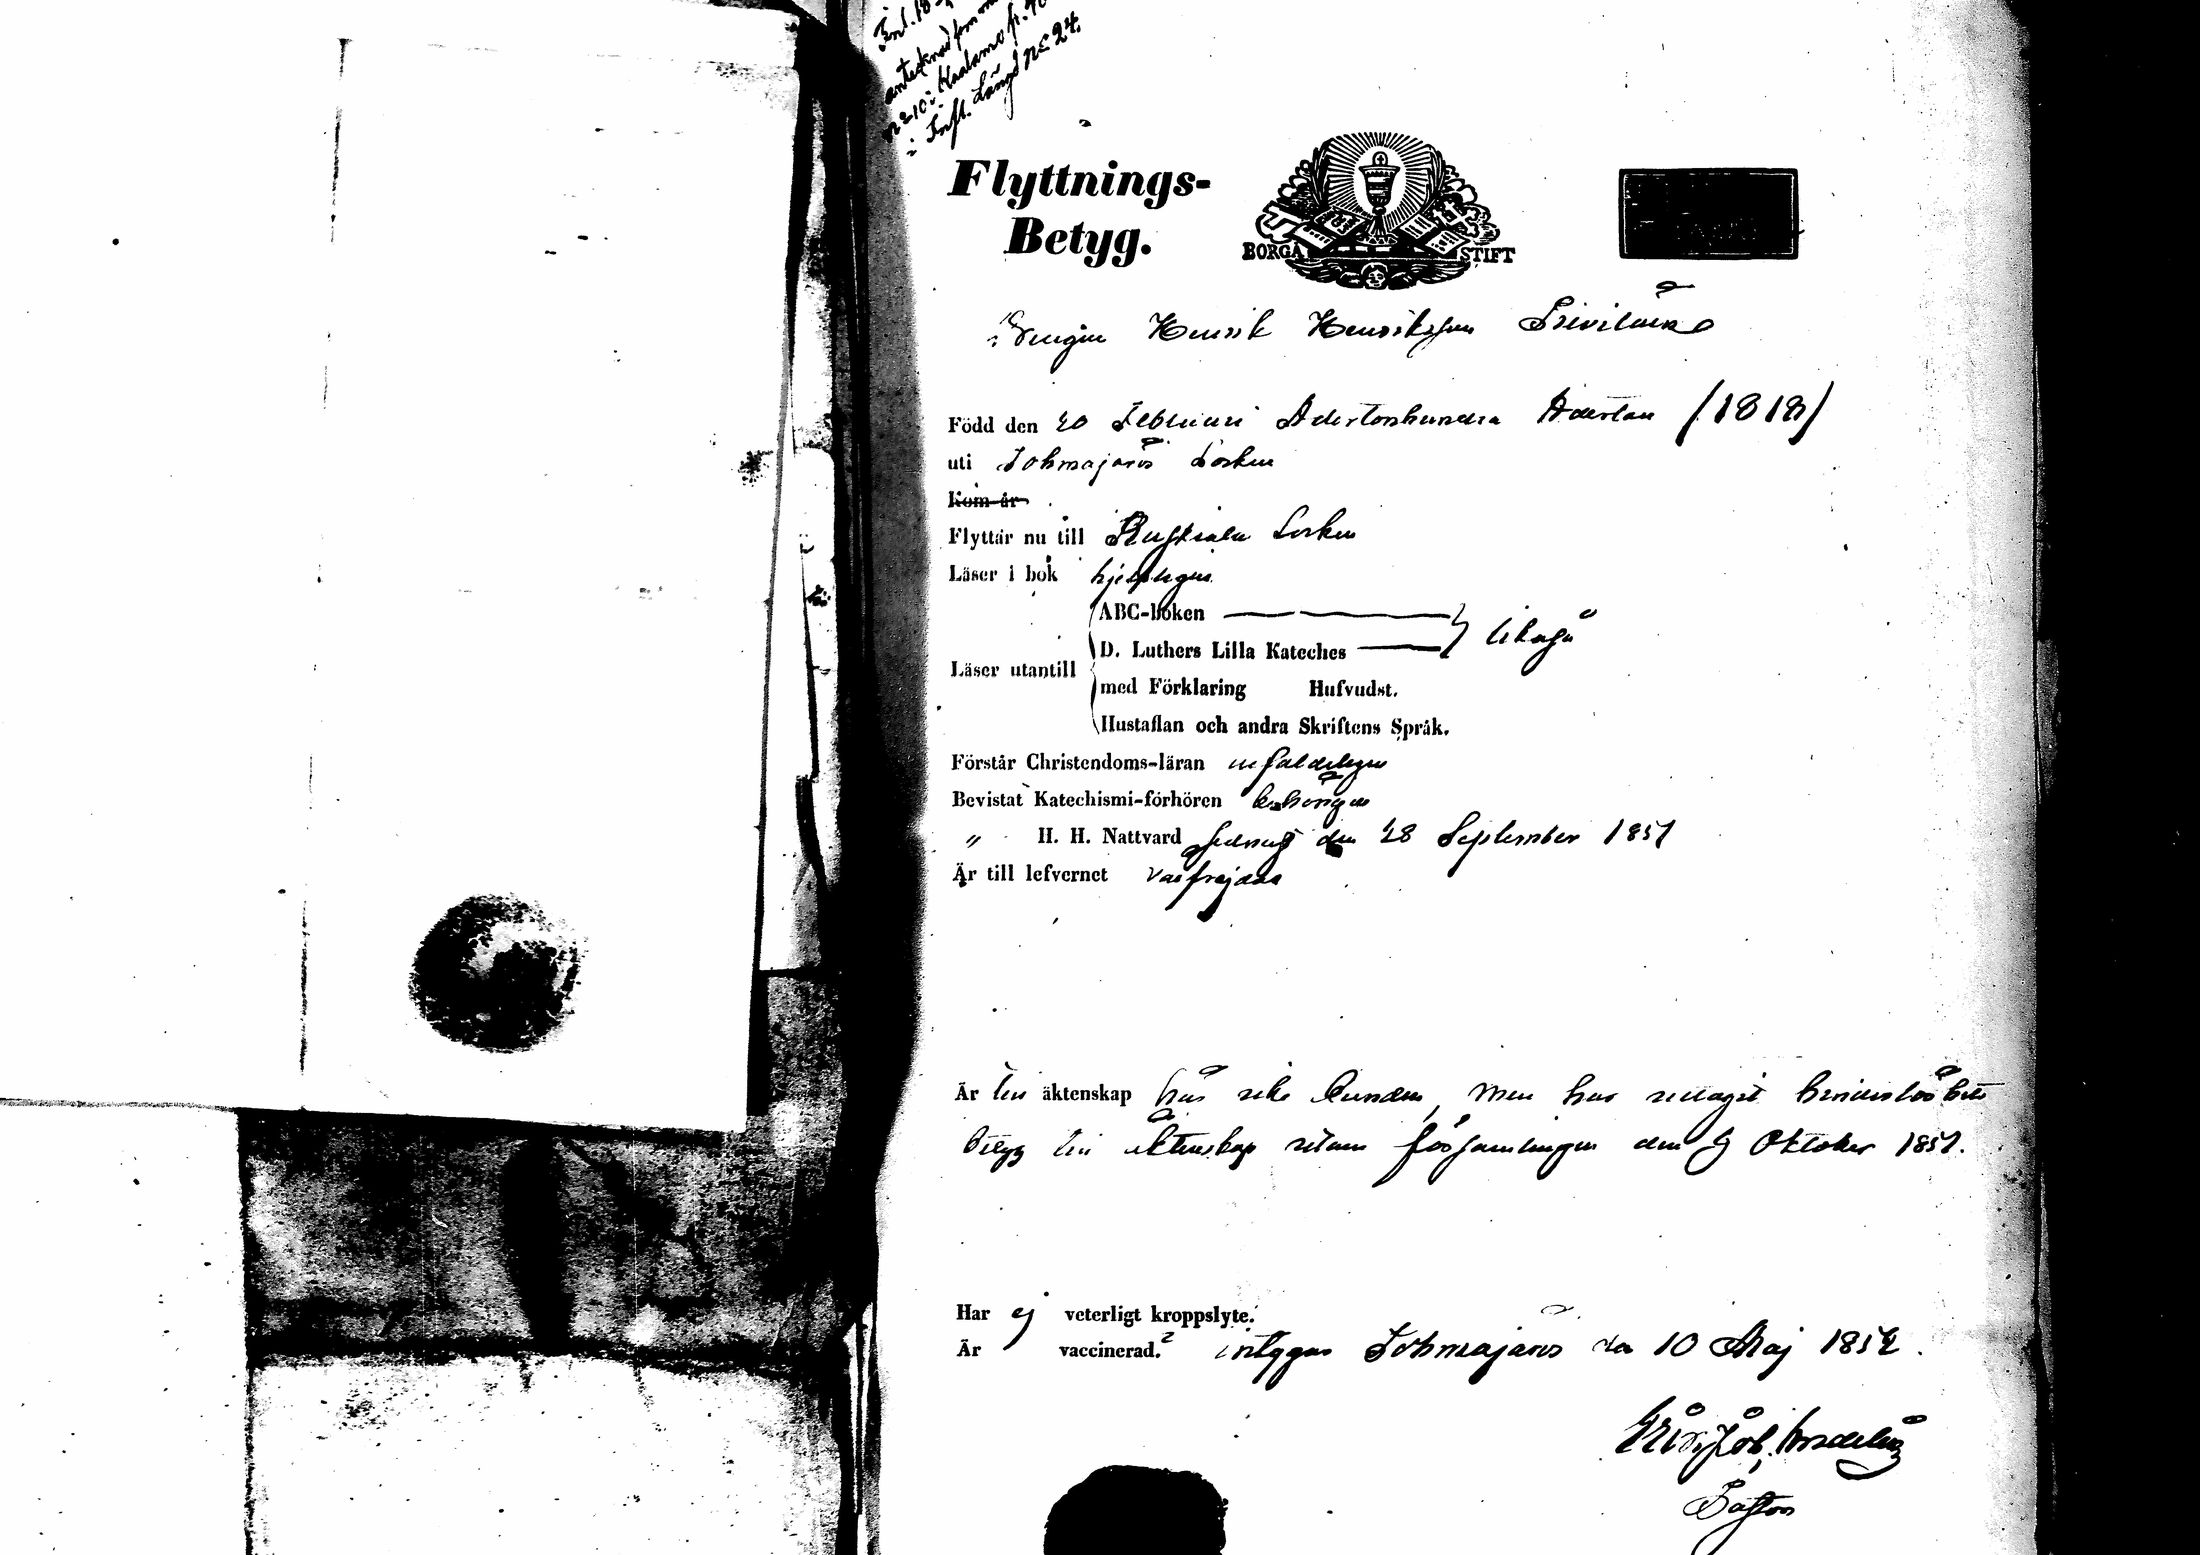 i Inft. Längd No 24.
Flyttnings-
Betyg.
BORGÅ STIFT
Drengen Henrik Henriksson
Född den 20 Februari Adertonhundra Aderton (1818)
uti Tohmajärvi Socken
Kom år
Flyttar nu till Ruskiala Socken
Läser i bok hjelpligen
ABC-boken
D. Luthers Lilla Kateches likaså
Läser utantill
med Förklaring Hufvudst.
Hustaflan och andra Skriftens Språk.
Förstår Christendoms-läran enfaldeligen
Bevistat Katechismi-förhören behörigen
„ H. H. Nattvard sednast den 28 September 1851
Är till lefvernet välfrejdad
Är till äktenskap här icke bunden, men har uttagit hinderslöshets
betyg till äktenskap utom församlingen den 9 Oktober 1851.
Har ej veterligt kroppslyte.
Är vaccinerad. intygar Tohmajärvi den 10 Maj 1852.
Pastor